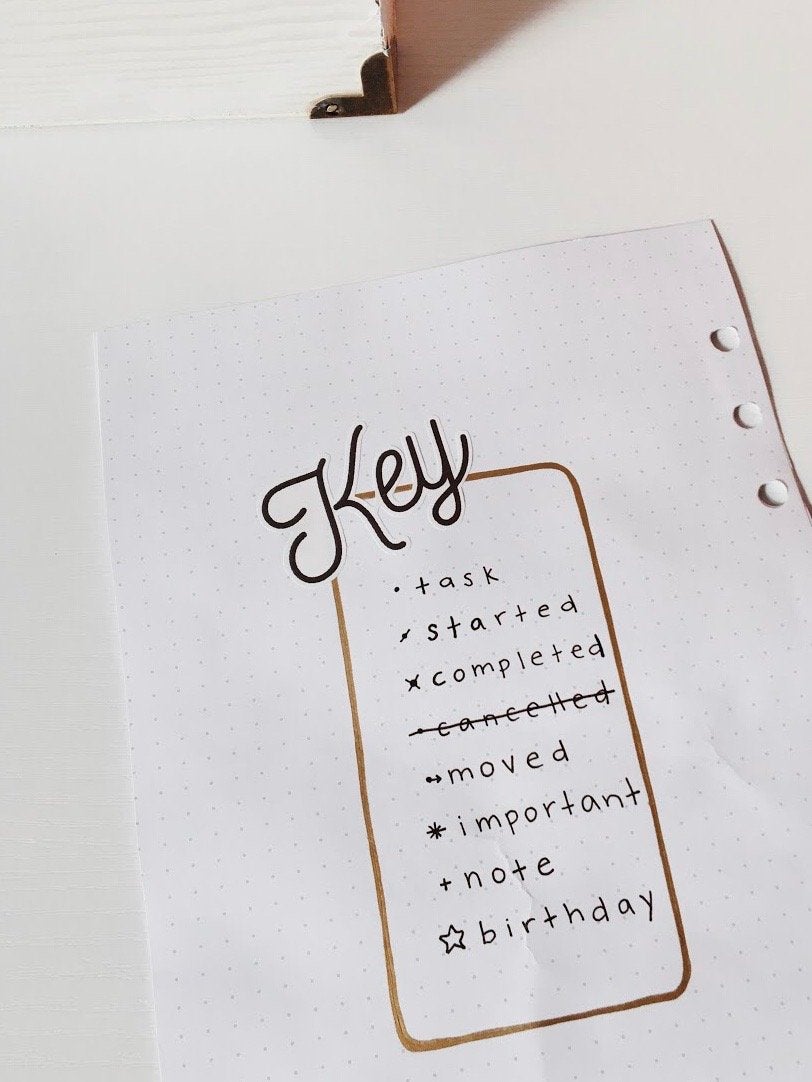 Key
· task
⸝ started
× completed
· cancelled
→ moved
* important
+ note
☆ birthday